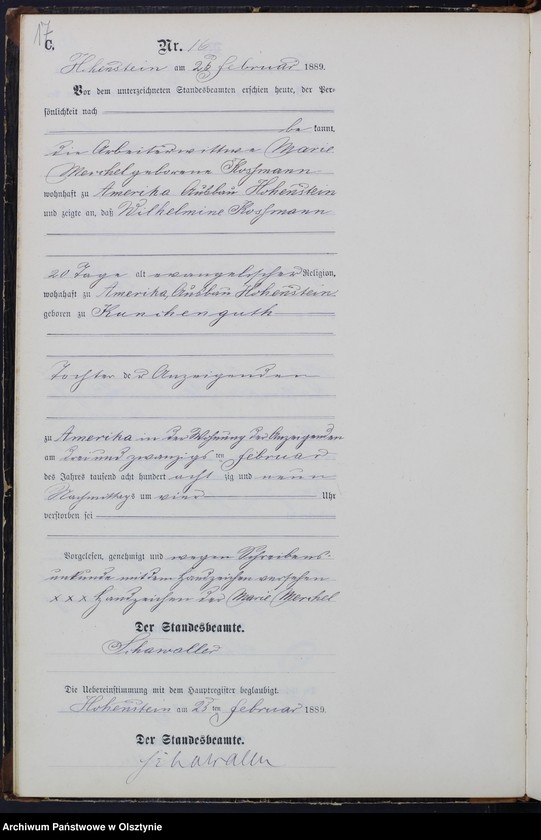 17
C.
Nr. 16
Hohenstein am 25 ten Februar 1889.
Vor dem unterzeichneten Standesbeamten erschien heute, der Per-
sönlichkeit nach
be kannt,
die Arbeiterwittwe Marie
Merchel geborene Roßmann
wohnhaft zu Amerika Ausbau Hohenstein
und zeigte an, daß Wilhelmine Roßmann
20 Tage alt evangelischer Religion,
wohnhaft zu Amerika, Ausbau Hohenstein
geboren zu Kunchenguth
Tochter der Anzeigenden
zu Amerika in der Wohnung der Anzeigenden
am drei und zwanzigs ten Februar
des Jahres tausend acht hundert acht zig und neun
Nachmittags um vier Uhr
verstorben sei
Vorgelesen, genehmigt und wegen Schreibens-
unkunde mit dem Handzeichen versehen
x x x Handzeichen der Marie Merchel
Der Standesbeamte.
Schawaller
Die Uebereinstimmung mit dem Hauptregister beglaubigt.
Hohenstein am 25 ten Februar 1889.
Der Standesbeamte.
Schawaller
Archiwum Państwowe w Olsztynie